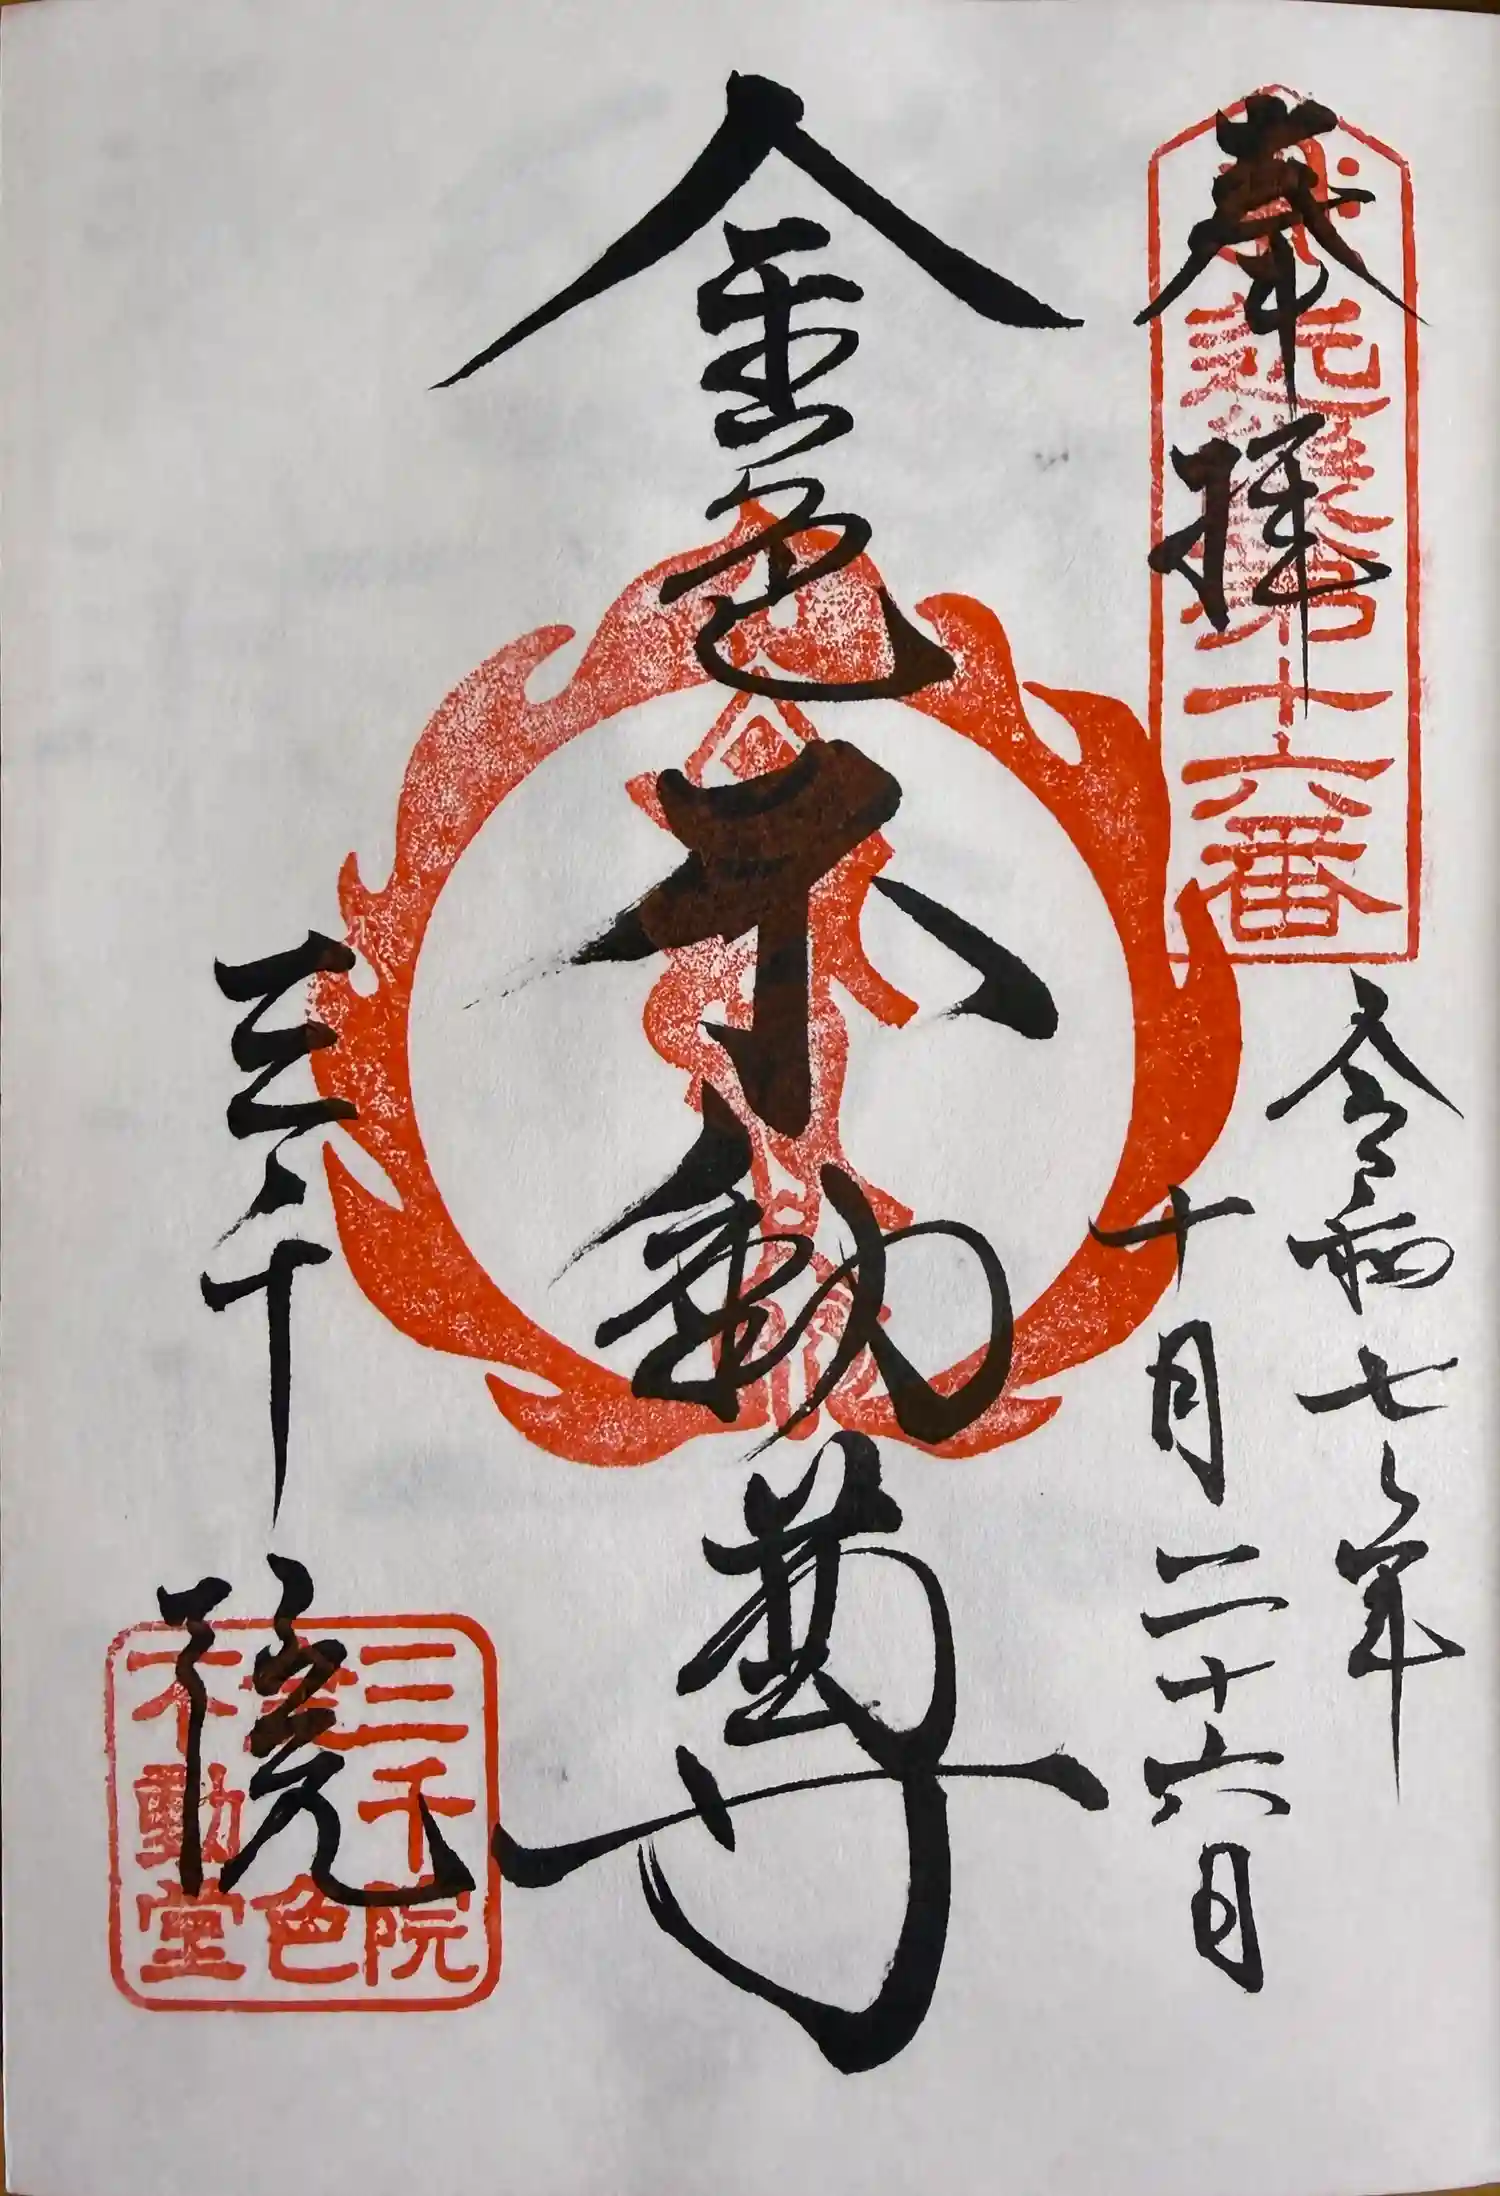 奉拝
近畿第十六番
令和七年
十月二十六日
金色不動尊
三千院
三千院
金色
不動堂